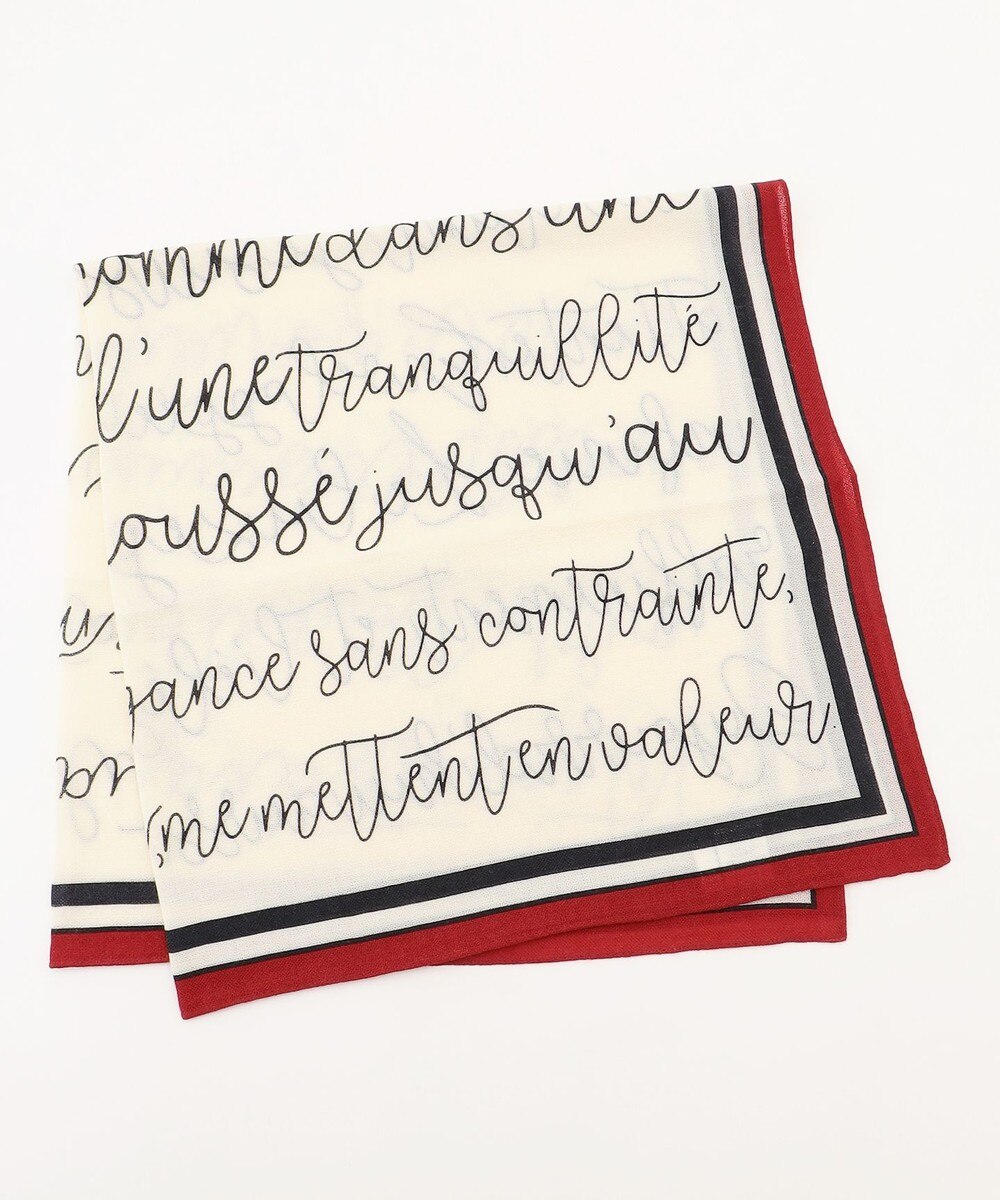 comme dans une
l'une tranquillité
oussé jusqu'au
ance sans contrainte,
me mettent en valeur